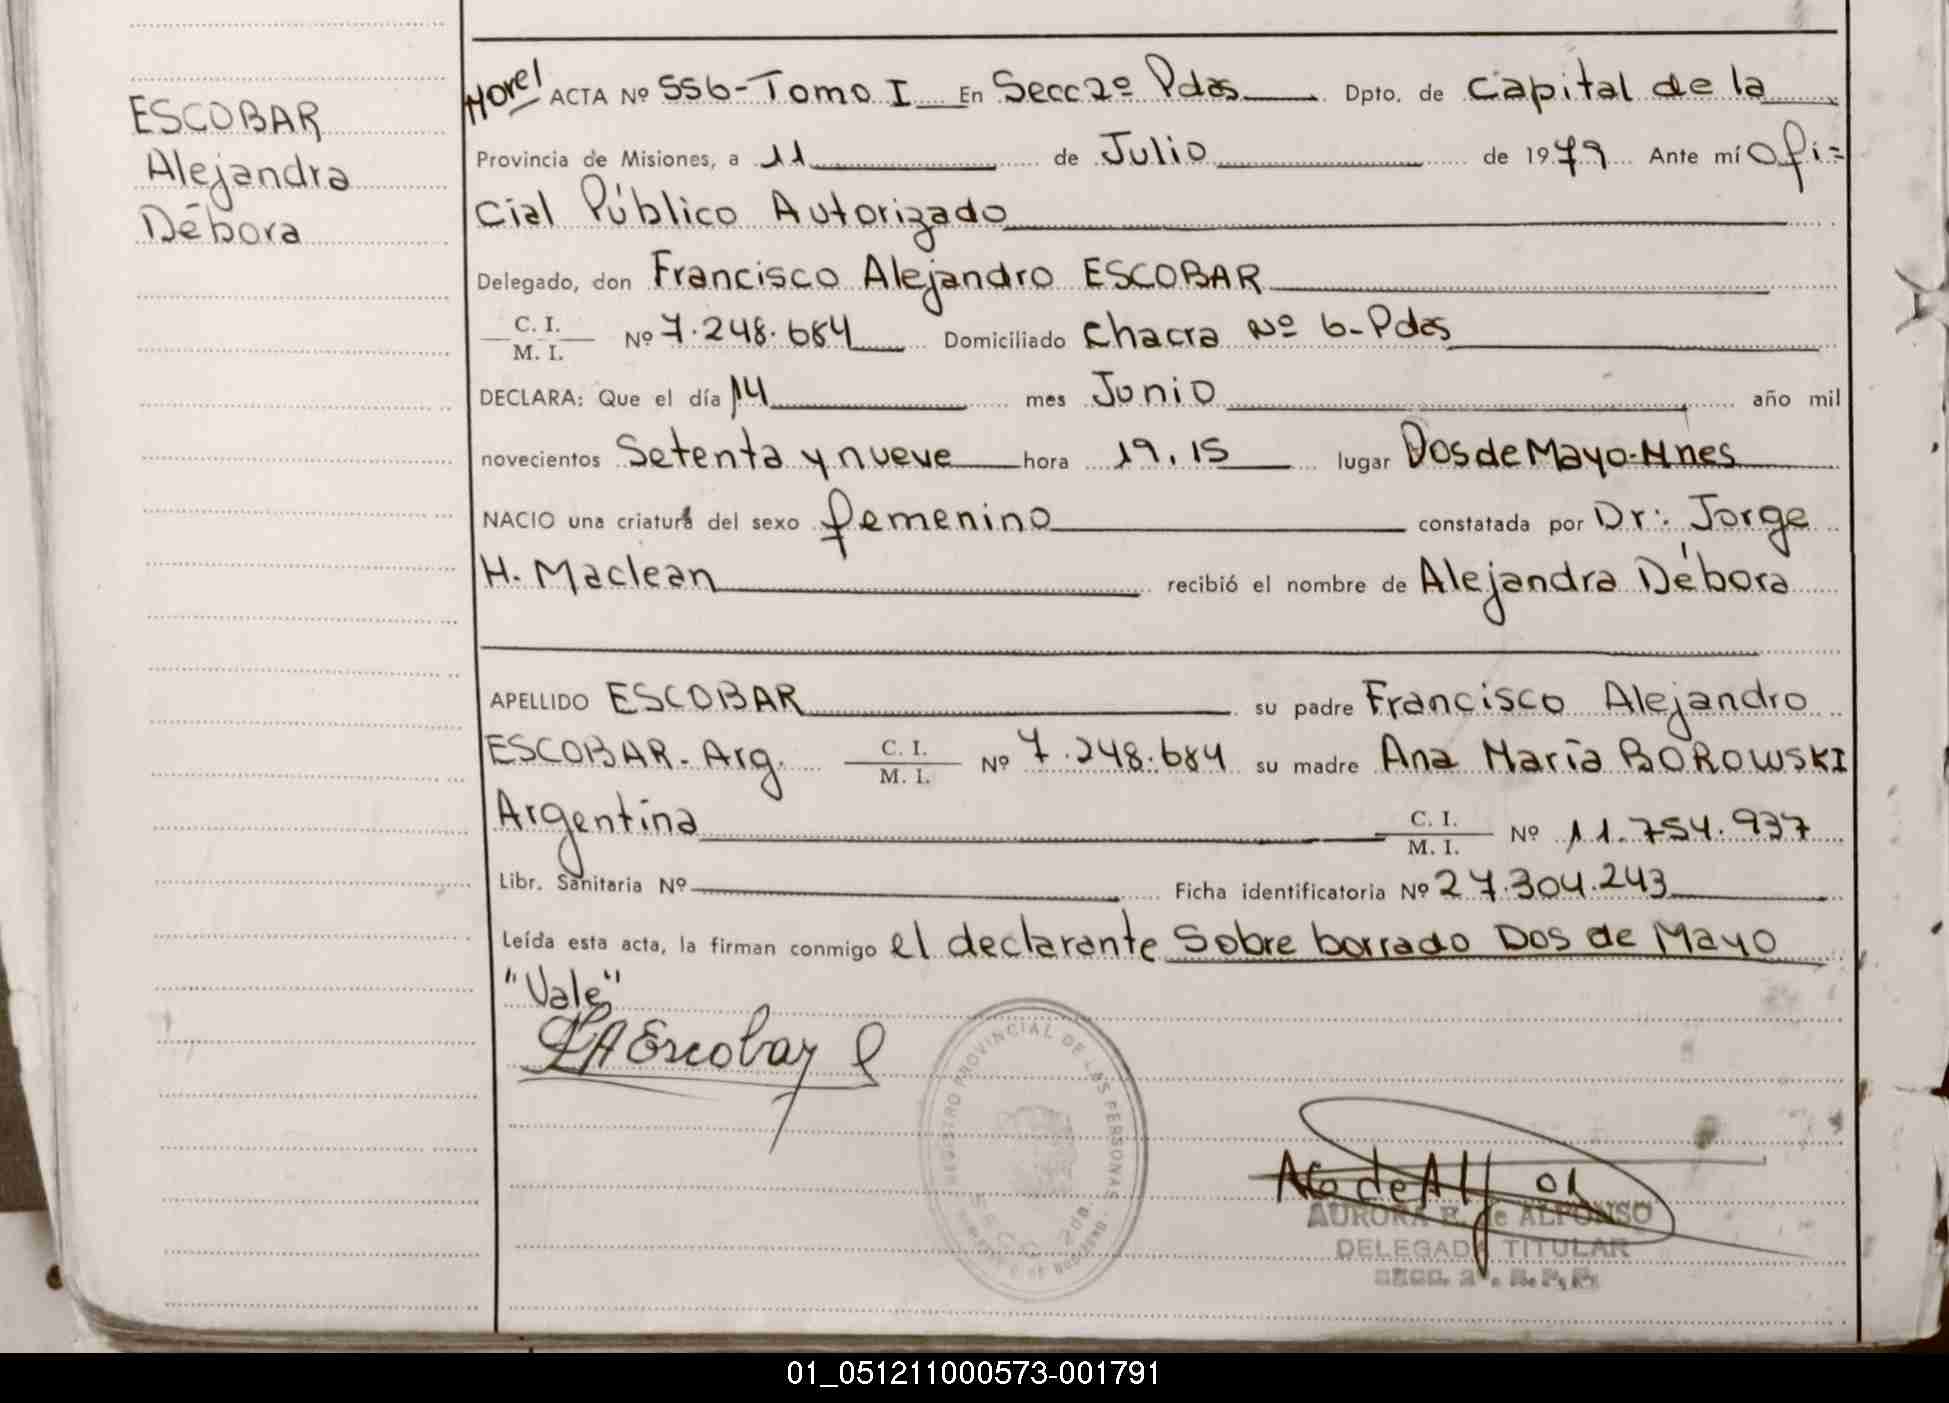 ESCOBAR
Alejandra
Débora
ACTA Nº 556-Tomo I En Secc 2º Pdas Dpto. de Capital de la
Provincia de Misiones, a 11 de Julio de 1979 Ante mí Ofi=
cial Público Autorizado
Delegado, don Francisco Alejandro ESCOBAR
C. I.
M. I. Nº 7.248.684 Domiciliado Chacra Nº 6-Pdas
DECLARA: Que el día 14 mes Junio año mil
novecientos Setenta y nueve hora 19,15 lugar Dos de Mayo-Mnes
NACIO una criatura del sexo femenino constatada por Dr: Jorge
H. Maclean recibió el nombre de Alejandra Débora
APELLIDO ESCOBAR su padre Francisco Alejandro
ESCOBAR-Arg. C. I.
M. I. Nº 7.248.684 su madre Ana María BOROWSKI
Argentina C. I.
M. I. Nº 11.754.937
Libr. Sanitaria Nº Ficha identificatoria Nº 27.304.243
Leída esta acta, la firman conmigo el declarante Sobre borrado Dos de Mayo
"Vale"
FAEscobar
REGISTRO PROVINCIAL DE LAS PERSONAS
SECC 2da.
AURORA E. de ALFONSO
DELEGADA TITULAR
SECC. 2ª. R. P. P.
01_051211000573-001791